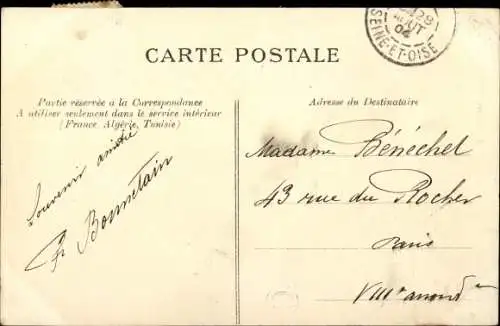 29
AOUT
04
SEINE-ET-OISE
CARTE POSTALE
Partie réservée à la Correspondance
A utiliser seulement dans le service intérieur
(France, Algérie, Tunisie)
Souvenir amitié
Bonnetain
Adresse du Destinataire
Madame Bénéchel
43 rue du Rocher
Paris
VIIIe arrondt